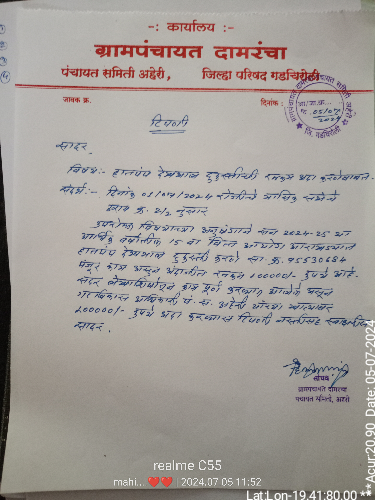 -: कार्यालय :-
ग्रामपंचायत दामरंचा
पंचायत समिती अहेरी, जिल्हा परिषद गडचिरोली
जावक क्र. दिनांक :
टिपणी
सादर,
विषय:- हातपंप देखभाल दुरुस्तीची रक्कम अदा करणेबाबत.
संदर्भ:- दिनांक 01/07/2024 रोजीचे मासिक सभेचे
ठराव क्र. 2/2 नुसार
उपरोक्त विषयाच्या अनुषंगाने सन 2024-25 या
आर्थिक 15 वा वित्त आयोग आराखड्यात
हातपंप देखभाल दुरुस्ती करणे क्र. 95530664
मंजुर काम असुन रक्कम 100000/- रुपये आहे.
सदर काम पूर्ण असुन
गटविकास अधिकारी पं. स. अहेरी यांच्या खात्यावर
100000/- रुपये अदा करण्यास टिपणी
सादर.
सचिव
ग्रामपंचायत दामरंचा
पंचायत समिती, अहेरी
realme C55
mahi... ❤️❤️ | 2024.07.05 11:52
Lat:Lon-19.41:80.00 **
Acur:20.90 Date: 05/07/2024